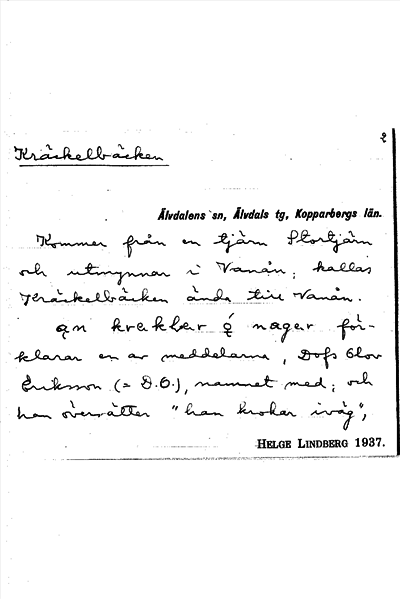 2
Kräckelbäcken
Älvdalens sn, Älvdals tg, Kopparbergs län.
Kommer från en tjärn Stortjärn
och utmynnar i Vanån; kallas
Kräckelbäcken ända till Vanån.
ąn krekler nager för-
klarar en av meddelarna, Dofs Olov
Eriksson (= D.O.), namnet med; och
han översätter "han krokar iväg",
HELGE LINDBERG 1937.